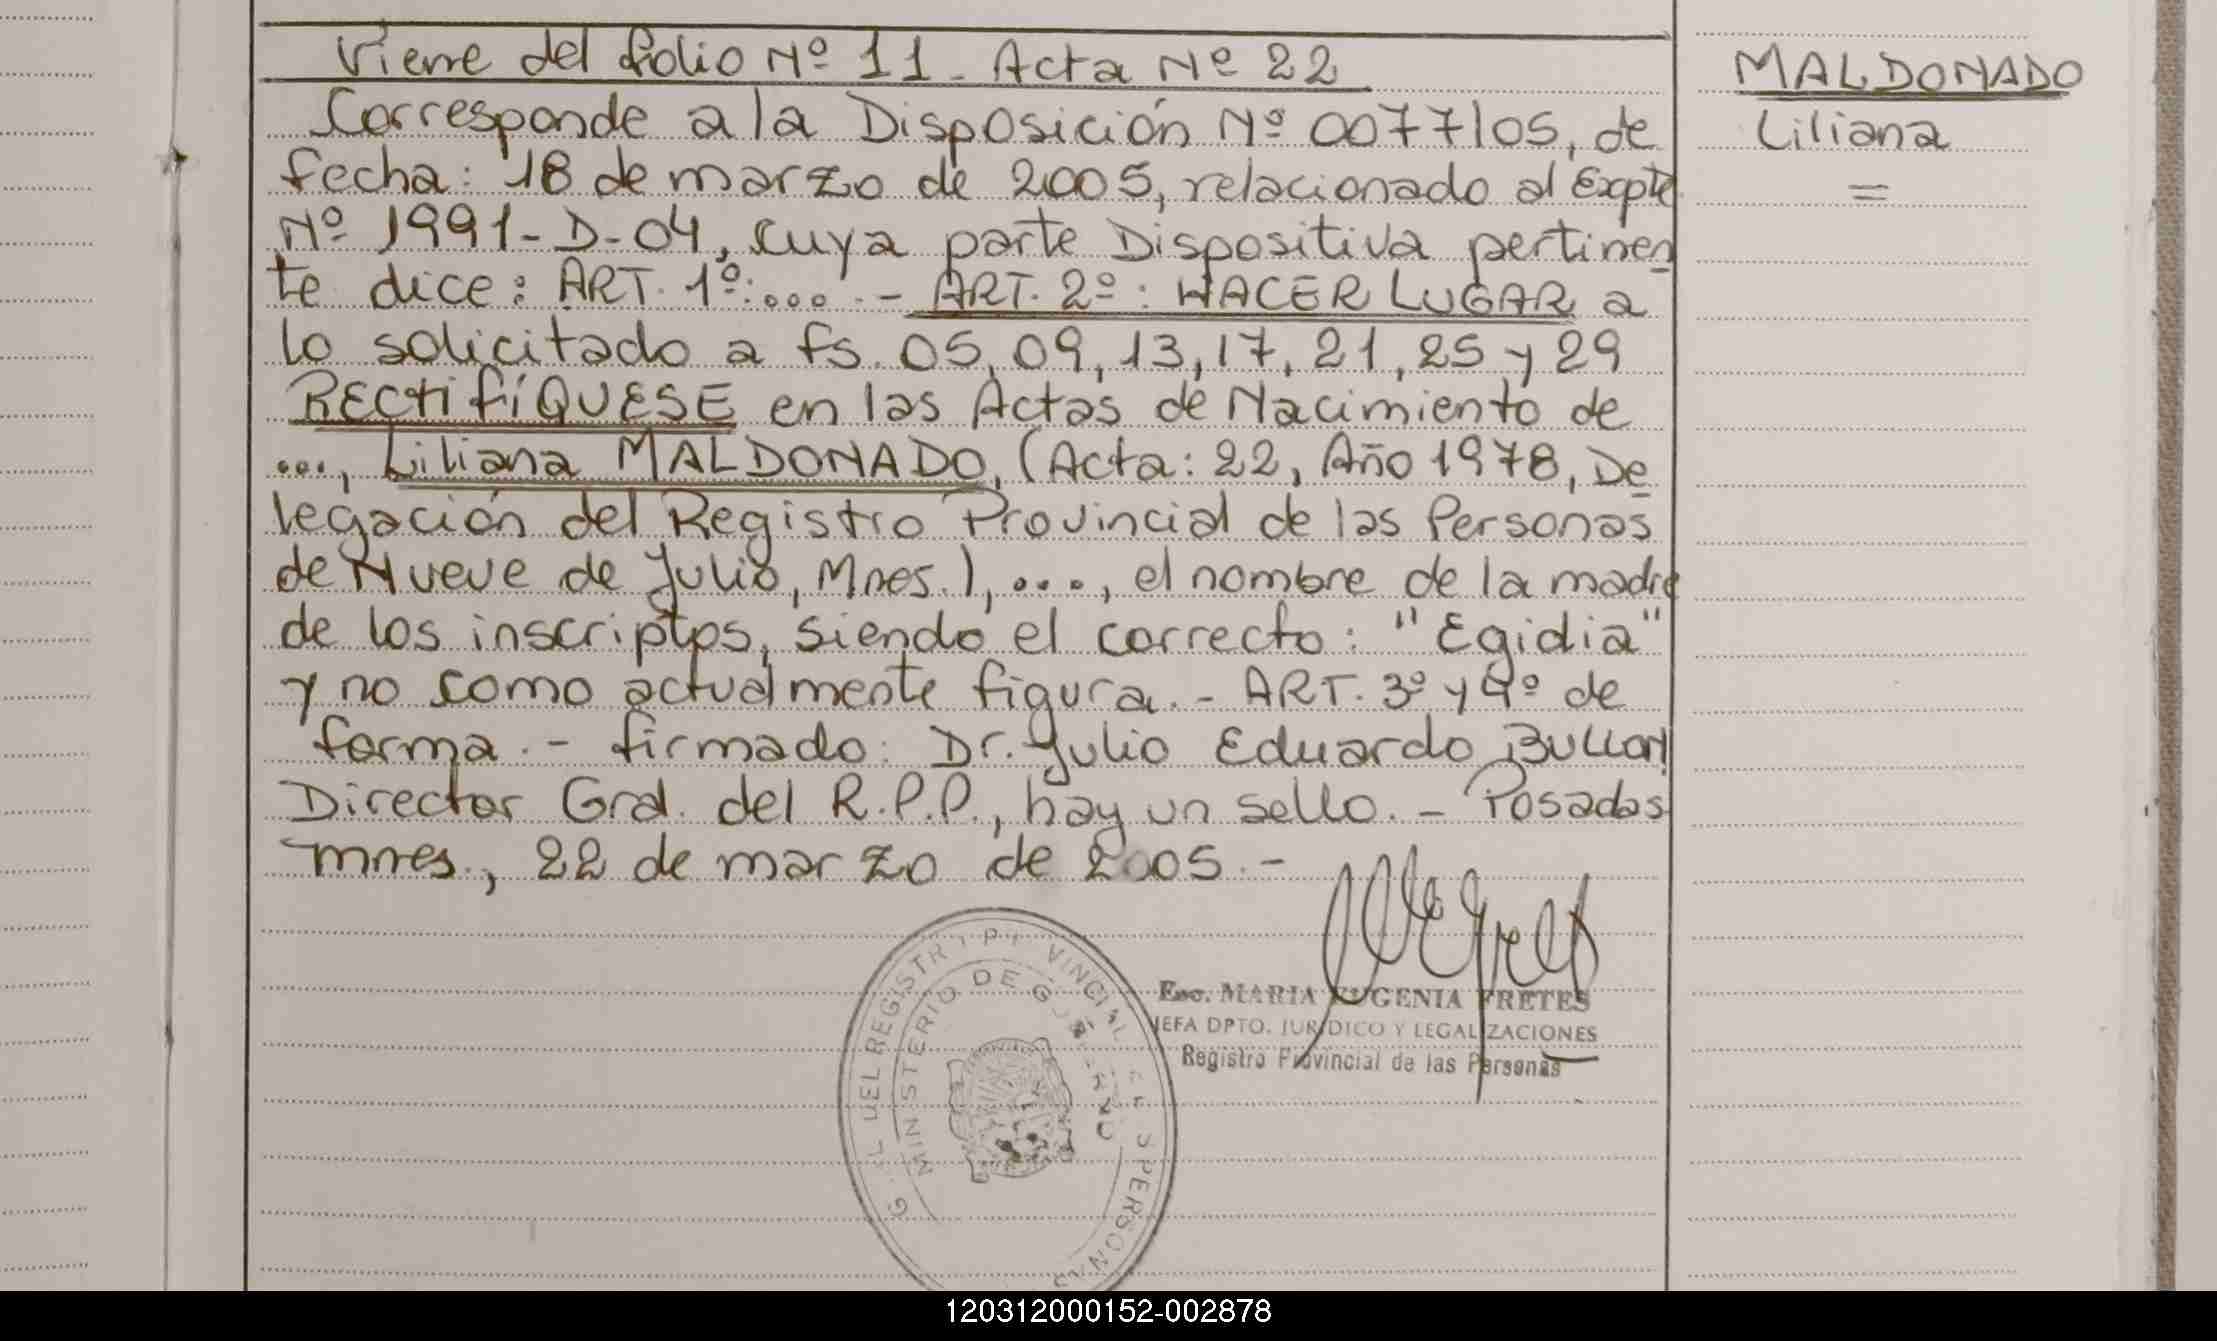 Viene del folio Nº 11 - Acta Nº 22
Corresponde a la Disposición Nº 0077/05, de
fecha: 18 de marzo de 2005, relacionado al Expte
Nº 1991-D-04, cuya parte Dispositiva pertinen
te dice: ART. 1º:.... - ART. 2º: HACER LUGAR a
lo solicitado a fs. 05, 09, 13, 17, 21, 25 y 29
RECTIFÍQUESE en las Actas de Nacimiento de
..., Liliana MALDONADO, (Acta: 22, Año 1978, De
legación del Registro Provincial de las Personas
de Nueve de Julio, Mnes.), ...., el nombre de la madre
de los inscriptos, siendo el correcto: "Egidia"
y no como actualmente figura. - ART. 3º y 4º de
forma. - firmado: Dr. Julio Eduardo BULLON
Director Gral. del R.P.P., hay un sello. - Posadas
mnes., 22 de marzo de 2005. -
MALDONADO
Liliana
=
Esc. MARIA EUGENIA FRETES
JEFA DPTO. JURIDICO Y LEGALIZACIONES
Registro Provincial de las Personas
MINISTERIO DE GOBIERNO
120312000152-002878